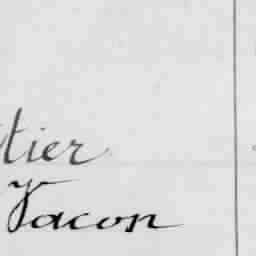 tier
Yacon